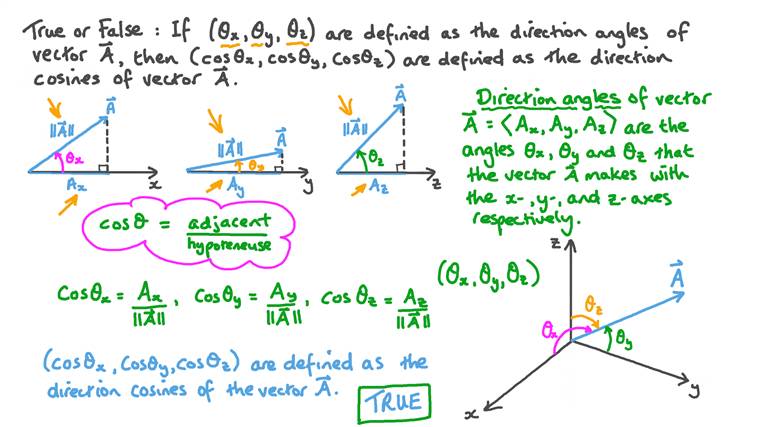 True or False : If (θx, θy, θz) are defined as the direction angles of
vector A⃗, then (cosθx, cosθy, cosθz) are defined as the direction
cosines of vector A⃗.
A⃗
||A⃗||
θx
Ax
x
A⃗
||A⃗||
Ay
y
A⃗
||A⃗||
θz
Az
z
Direction angles of vector
A⃗ = ⟨Ax, Ay, Az⟩ are the
angles θx, θy and θz that
the vector A⃗ makes with
the x-, y-, and z-axes
respectively.
cosθ = adjacent
hypoteneuse
Cosθx = Ax/||A⃗||, Cosθy = Ay/||A⃗||, cosθz = Az/||A⃗||
(θx, θy, θz)
z
A⃗
θz
θx
θy
y
x
(cosθx, cosθy, cosθz) are defined as the
direction cosines of the vector A⃗.
TRUE